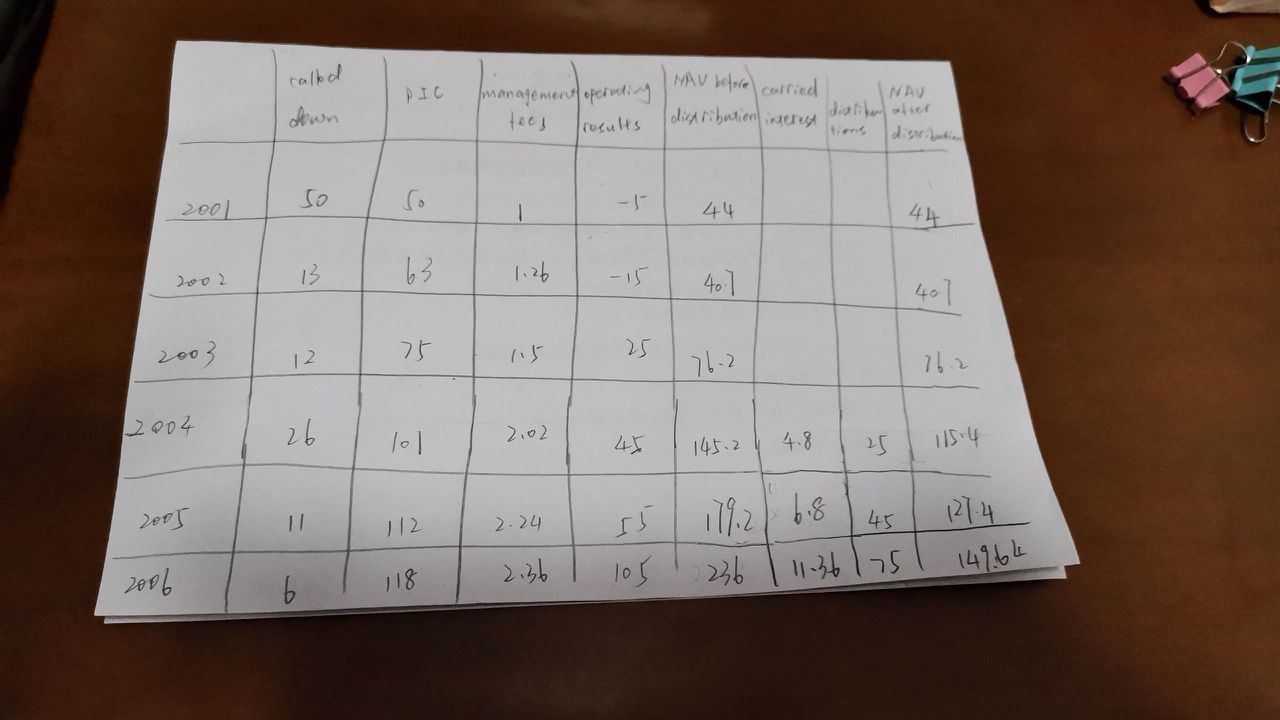 called down PIC management fees operating results NAV before distribution carried interest distributions NAV after distribution
2001 50 50 1 -5 44 44
2002 13 63 1.26 -15 40.7 40.7
2003 12 75 1.5 25 76.2 76.2
2004 26 101 2.02 45 145.2 4.8 25 115.4
2005 11 112 2.24 55 179.2 6.8 45 127.4
2006 6 118 2.36 105 236 11.36 75 149.64